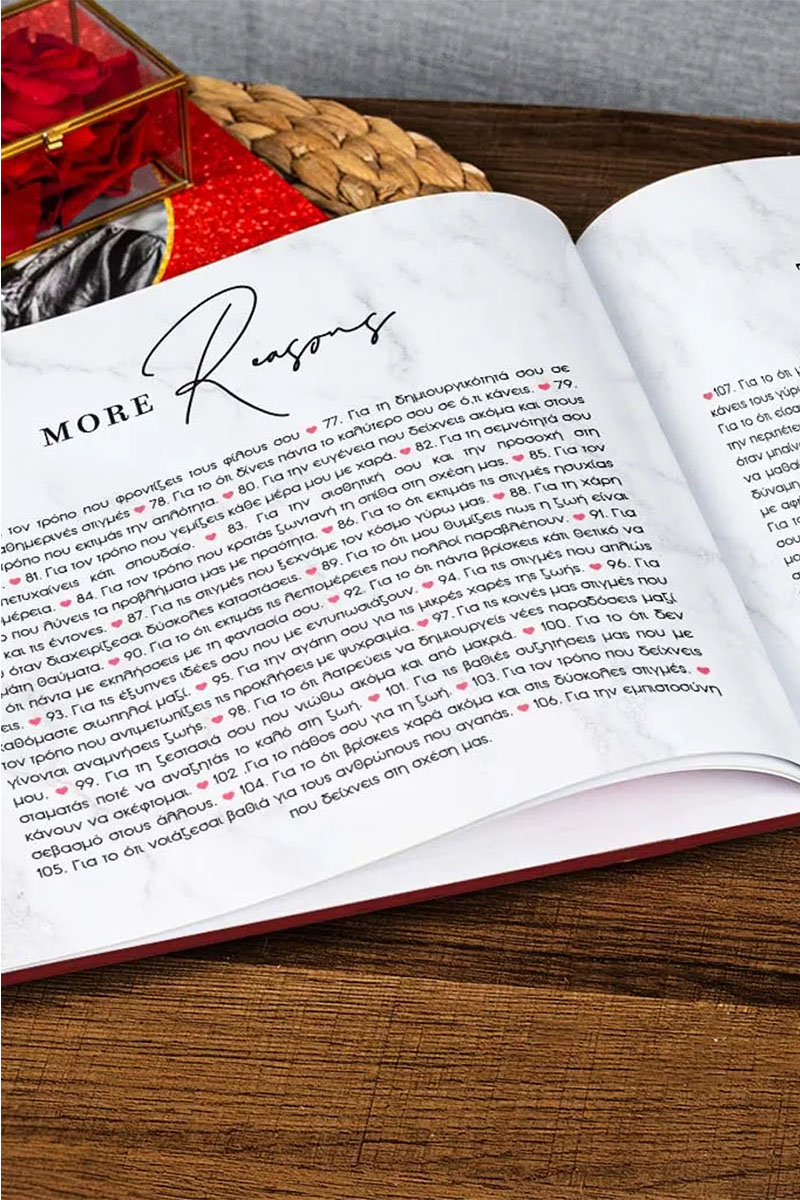 MORE Reasons
τον τρόπο που φροντίζεις τους φίλους σου ♥ 77. Για τη δημιουργικότητά σου σε
στιγμές ♥ 78. Για το ότι δίνεις πάντα το καλύτερο σου σε ό,τι κάνεις. ♥ 79.
τρόπο που εκτιμάς την απλότητα. ♥ 80. Για την ευγένεια που δείχνεις ακόμα και στους
♥ 81. Για τον τρόπο που γεμίζεις κάθε μέρα μου με χαρά. ♥ 82. Για τη σεμνότητά σου
κάτι σπουδαίο. ♥ 83. Για την αισθητική σου και την προσοχή στη
♥ 84. Για τον τρόπο που κρατάς ζωντανή τη σπίθα στη σχέση μας. ♥ 85. Για τον
που λύνεις τα προβλήματα μας με πραότητα. ♥ 86. Για το ότι εκτιμάς τις στιγμές ησυχίας
και τις έντονες. ♥ 87. Για τις στιγμές που ξεχνάμε τον κόσμο γύρω μας. ♥ 88. Για τη χάρη
όταν διαχειρίζεσαι δύσκολες καταστάσεις. ♥ 89. Για το ότι μου θυμίζεις πως η ζωή είναι
θαύματα. ♥ 90. Για το ότι εκτιμάς τις λεπτομέρειες που πολλοί παραβλέπουν. ♥ 91. Για
ότι πάντα με εκπλήσσεις με τη φαντασία σου. ♥ 92. Για το ότι πάντα βρίσκεις κάτι θετικό να
♥ 93. Για τις έξυπνες ιδέες σου που με εντυπωσιάζουν. ♥ 94. Για τις στιγμές που απλώς
καθόμαστε σιωπηλοί μαζί. ♥ 95. Για την αγάπη σου για τις μικρές χαρές της ζωής. ♥ 96. Για
τον τρόπο που αντιμετωπίζεις τις προκλήσεις με ψυχραιμία. ♥ 97. Για τις κοινές μας στιγμές που
γίνονται αναμνήσεις ζωής. ♥ 98. Για το ότι λατρεύεις να δημιουργείς νέες παραδόσεις μαζί
μου. ♥ 99. Για τη ζεστασιά σου που νιώθω ακόμα και από μακριά. ♥ 100. Για το ότι δεν
σταματάς ποτέ να αναζητάς το καλό στη ζωή. ♥ 101. Για τις βαθιές συζητήσεις μας που με
κάνουν να σκέφτομαι. ♥ 102 .Για το πάθος σου για τη ζωή. ♥ 103. Για τον τρόπο που δείχνεις
σεβασμό στους άλλους. ♥ 104. Για το ότι βρίσκεις χαρά ακόμα και στις δύσκολες στιγμές. ♥
105. Για το ότι νοιάζεσαι βαθιά για τους ανθρώπους που αγαπάς. ♥ 106. Για την εμπιστοσύνη
που δείχνεις στη σχέση μας.
♥107. Για το ότι
κάνεις τους
Για το ότι
την
όταν
να
δύναμη
με
Για
σου